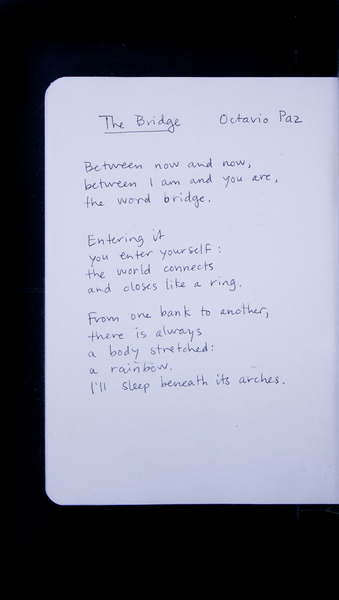 The Bridge Octavio Paz
Between now and now,
between I am and you are,
the word bridge.
Entering it
you enter yourself:
the world connects
and closes like a ring.
From one bank to another,
there is always
a body stretched:
a rainbow.
I'll sleep beneath its arches.